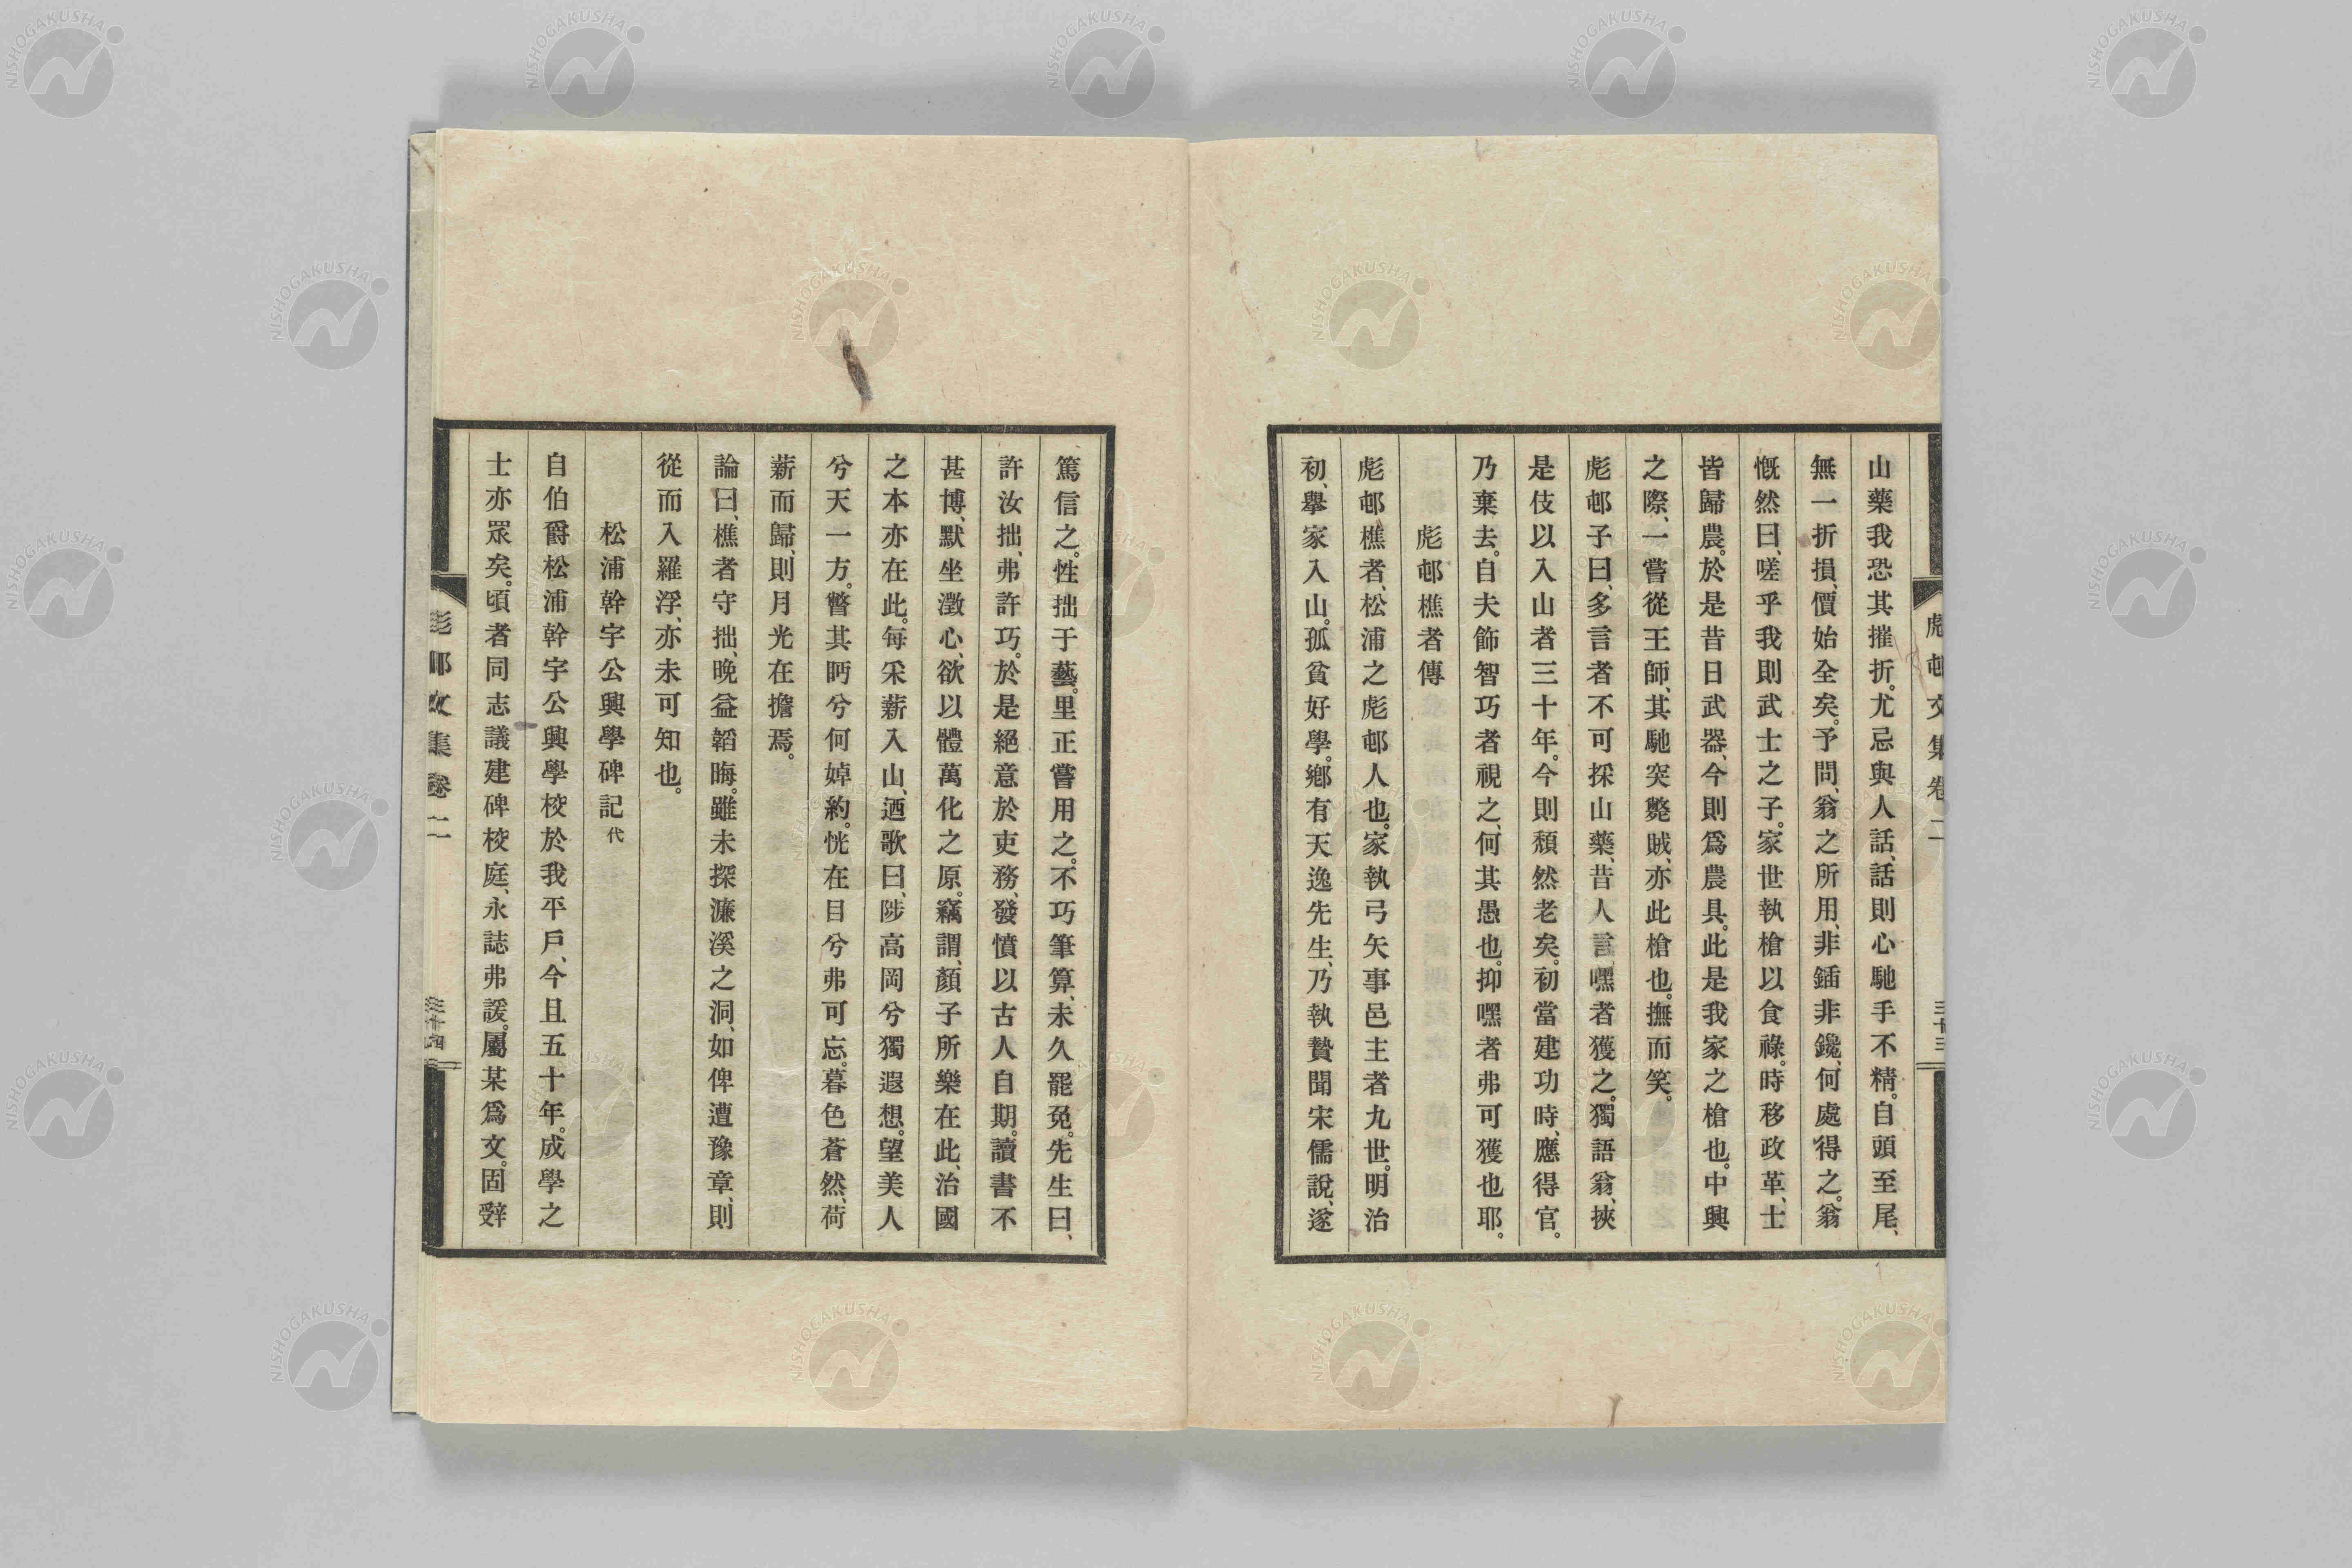 山藥我恐其摧折。尤忌與人話、話則心馳手不精。自頭至尾、
無一折損、價始全矣。予問、翁之所用、非鍤非鑱、何處得之。翁
慨然曰、嗟乎我則武士之子。家世執槍以食祿。時移政革、士
皆歸農。於是昔日武器、今則爲農具。此是我家之槍也。中興
之際、一嘗從王師、其馳突斃賊、亦此槍也。撫而笑。
彪邨子曰、多言者不可採山藥、昔人言、嘿者獲之。獨語翁、挾
是伎以入山者三十年。今則頹然老矣。初當建功時、應得官。
乃棄去。自夫飾智巧者視之、何其愚也。抑嘿者弗可獲也耶。
彪邨樵者傳
彪邨樵者、松浦之彪邨人也。家執弓矢事邑主者九世。明治
初、擧家入山。孤貧好學。鄕有天逸先生、乃執贄聞宋儒說、遂
彪邨文集卷二
三十三
篤信之。性拙于藝。里正嘗用之。不巧筆算、未久罷免。先生曰、
許汝拙、弗許巧。於是絕意於吏務、發憤以古人自期。讀書不
甚博、默坐澂心、欲以體萬化之原。竊謂、顏子所樂在此、治國
之本亦在此。每采薪入山、迺歌曰、陟高岡兮獨遐想。望美人
兮天一方。瞥其眄兮何婥約。恍在目兮弗可忘。暮色蒼然、荷
薪而歸、則月光在擔焉。
論曰、樵者守拙、晚益韜晦。雖未探濂溪之洞、如俾遭豫章、則
從而入羅浮、亦未可知也。
松浦幹宇公興學碑記 代
自伯爵松浦幹宇公興學校於我平戶、今且五十年。成學之
士亦眾矣。頃者同志議建碑校庭、永誌弗諼。屬某爲文。固辭
彪邨文集卷二
三十四
NISHOGAKUSHA